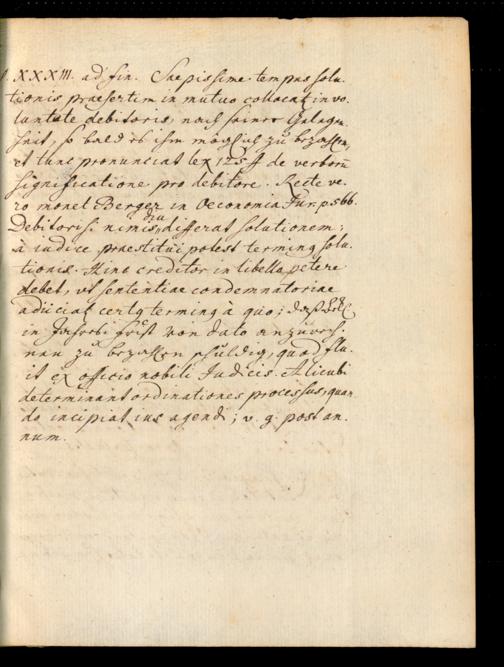 XXXIII. ad fin. Saepissime tempus solu-
tionis praesertim in mutuo collocat in vo-
luntate debitoris, nach seiner Gelegen-
heit, so bald es ihm möglich zu bezahlen,
et tunc pronunciat lex 125 ff de verborũ
significatione pro debitore. Recte ve-
ro monet Berger in Oeconomia Jur. p. 566.
Debitor si nimis diu differat solutionem;
à iudice praestitui potest terming solu-
tionis. Hinc creditor in libello petere
debet, ut sententiae condemnatoriae
adiiciat certg terming à quo; daß
in frist von dato anzurech-
nen zu bezahlen schuldig, quod flu-
it ex officio nobili Judicis. Alicubi
determinant ordinationes processus, quan-
do incipiat ius agendi; v. g. post an-
num.